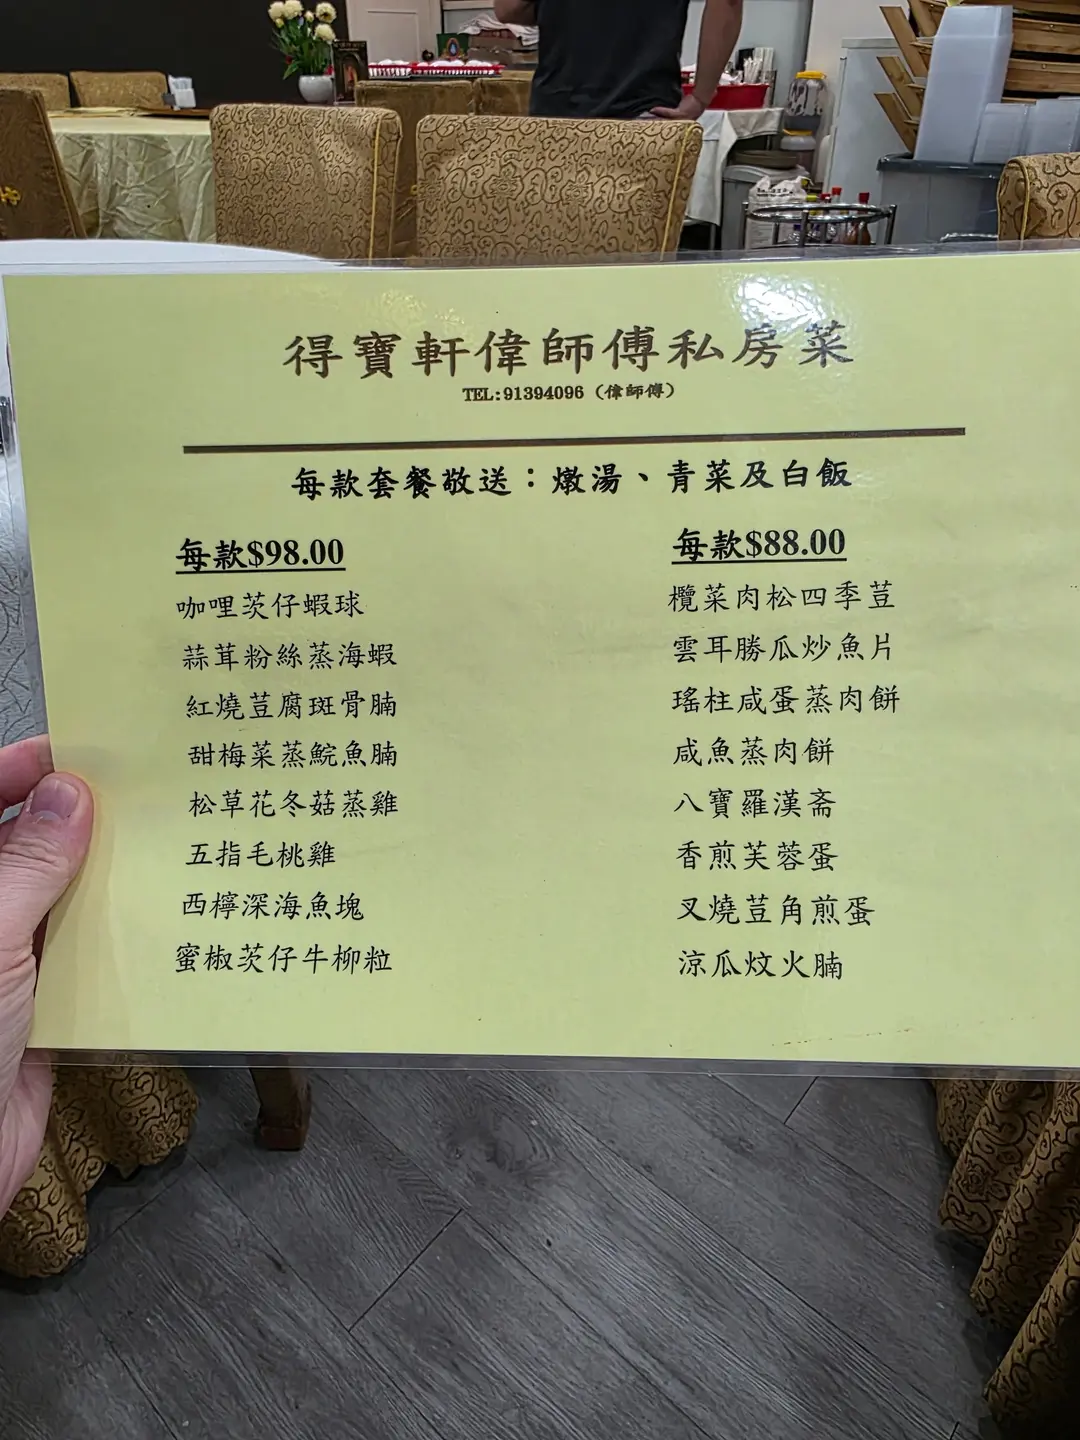 得寶軒偉師傅私房菜
TEL:91394096（偉師傅）
每款套餐敬送：燉湯、青菜及白飯
每款$98.00
咖哩茨仔蝦球
蒜茸粉絲蒸海蝦
紅燒荳腐斑骨腩
甜梅菜蒸鯇魚腩
松草花冬菇蒸雞
五指毛桃雞
西檸深海魚塊
蜜椒茨仔牛柳粒
每款$88.00
欖菜肉松四季荳
雲耳勝瓜炒魚片
瑤柱咸蛋蒸肉餅
咸魚蒸肉餅
八寶羅漢斋
香煎芙蓉蛋
叉燒荳角煎蛋
涼瓜炆火腩